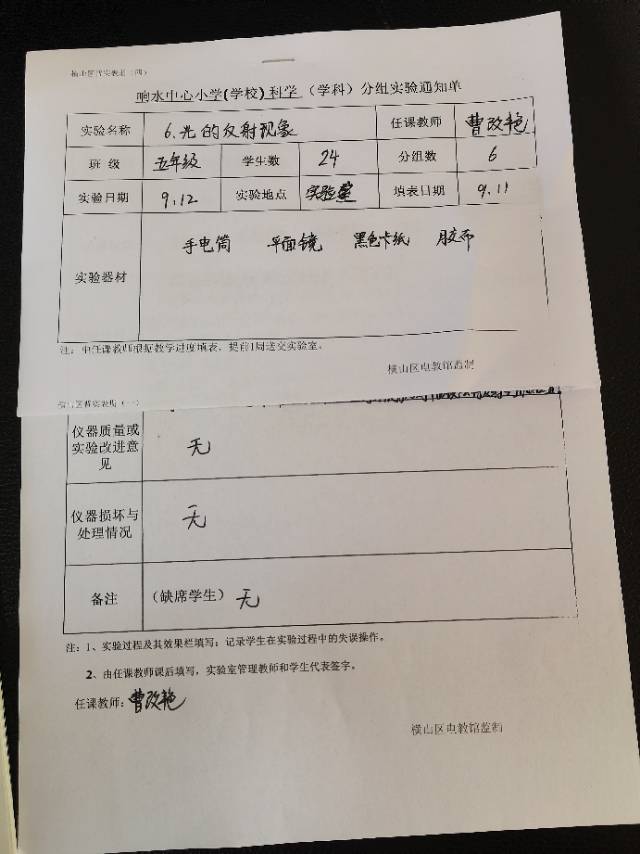 横山区普实表册（四）
响水中心小学(学校)科学（学科）分组实验通知单
实验名称 6.光的反射现象 任课教师 曹改艳
班 级 五年级 学生数 24 分组数 6
实验日期 9.12 实验地点 实验室 填表日期 9.11
实验器材 手电筒 平面镜 黑色卡纸 胶布
注：由任课教师根据教学进度填表，提前1周送交实验室。
横山区电教馆监制
仪器质量或实验改进意见 无
仪器损坏与处理情况 无
备注 （缺席学生） 无
注：1、实验过程及其效果栏填写：记录学生在实验过程中的失误操作。
2、由任课教师课后填写，实验室管理教师和学生代表签字。
任课教师：曹改艳
横山区电教馆监制